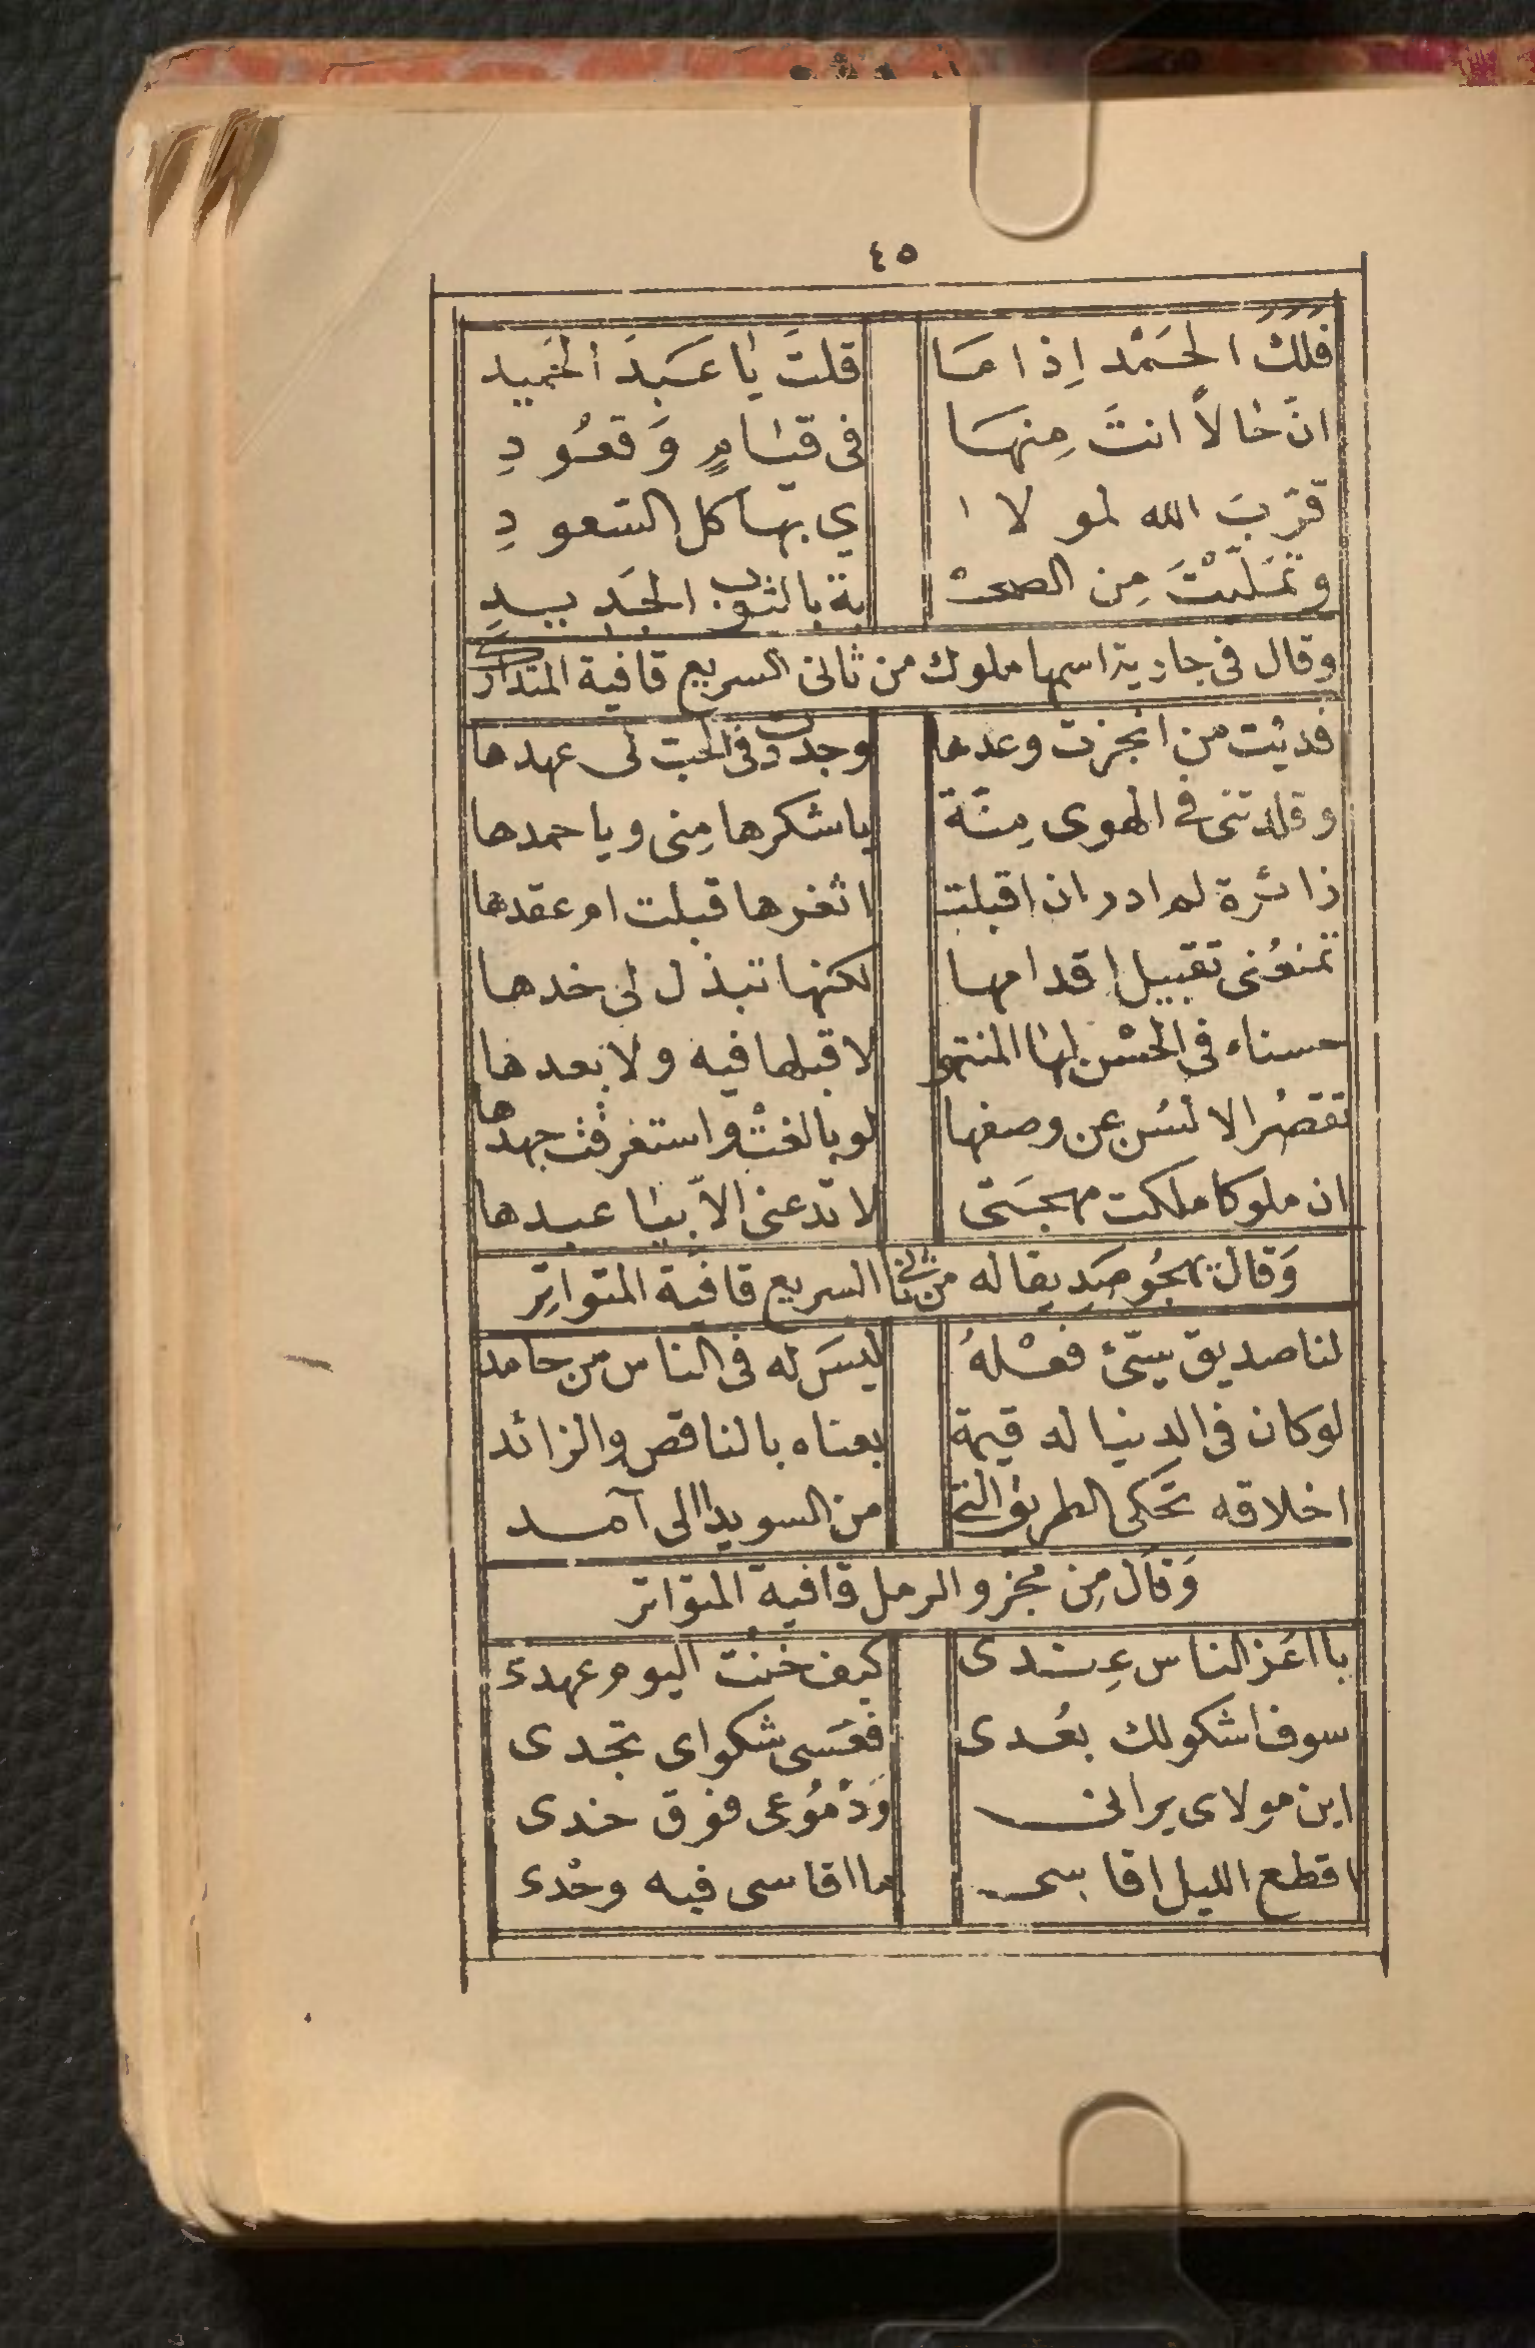 ٤٥
فلك الحَمْد اِذا مَا قلتَ يا عَبدَ الحَميد
انّ حالاً انتَ مِنهَا فى قيَامٍ وَقعُودِ
قرّبَ الله لمولا ا ي بهَا كل السّعودِ
وتمَلّيْتَ مِن الصحْ بة بالثوب الجَديدِ
وقال فى جارية اسمها ملوك من ثانى السريع قافية المتدارك
فديت من انجزت وعدها وجددت فى الحب لى عهدها
وقلدتنى فى الهوى مِنَّة ياشكرها مِنى ويا حمدها
زائرة لم ادر ان اقبلت اثغرها قبلت ام عقدها
تمنعُنى تقبيل اقدامها لكنها تبذل لى خدها
حسناء فى الحسْن لها المنتهى لا قبلها فيه ولا بعدها
تقصُر الالسُن عن وصفها لو بالغتْ واستغرقت جهدها
ان ملوكا ملكت مهجَتى لا تدعنى الاّ بيا عبدها
وَقال يهجُو صَديقا له من ثانى السريع قافية المتواتِر
لنا صديق سيّئ فعْلهُ ليسَ له فى الناس من حامد
لوكان فى الدنيا له قيمة بعناه بالناقص والزائد
اخلاقه تحَكى الطريق التى من السويدا الى آمد
وَقال مِن مجزو الرمل قافية المتواتر
يا اعَز الناس عِندى كيف خنت اليوم عهدى
سوف اشكو لك بعُدى فعَسى شكواى تجدى
اين مولاى يرانى وَدُمُوعى فوق خدى
اقطع الليل اقاسى ما اقاسى فيه وحْدى